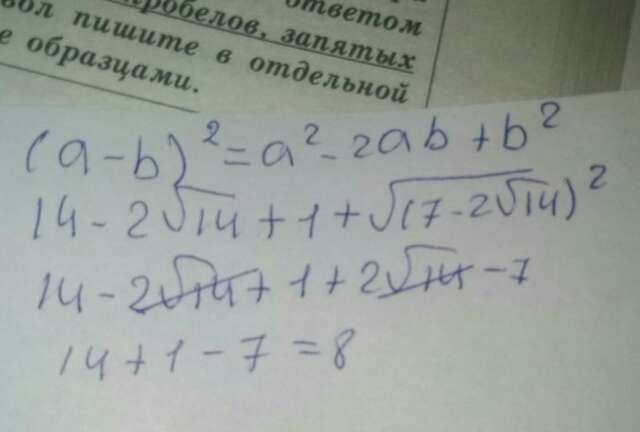 ответом
пробелов, запятых
пишите в отдельной
образцами.
(a-b)²=a²-2ab+b²
14-2√14+1+√(7-2√14)²
14-2√14+1+2√14-7
14+1-7=8